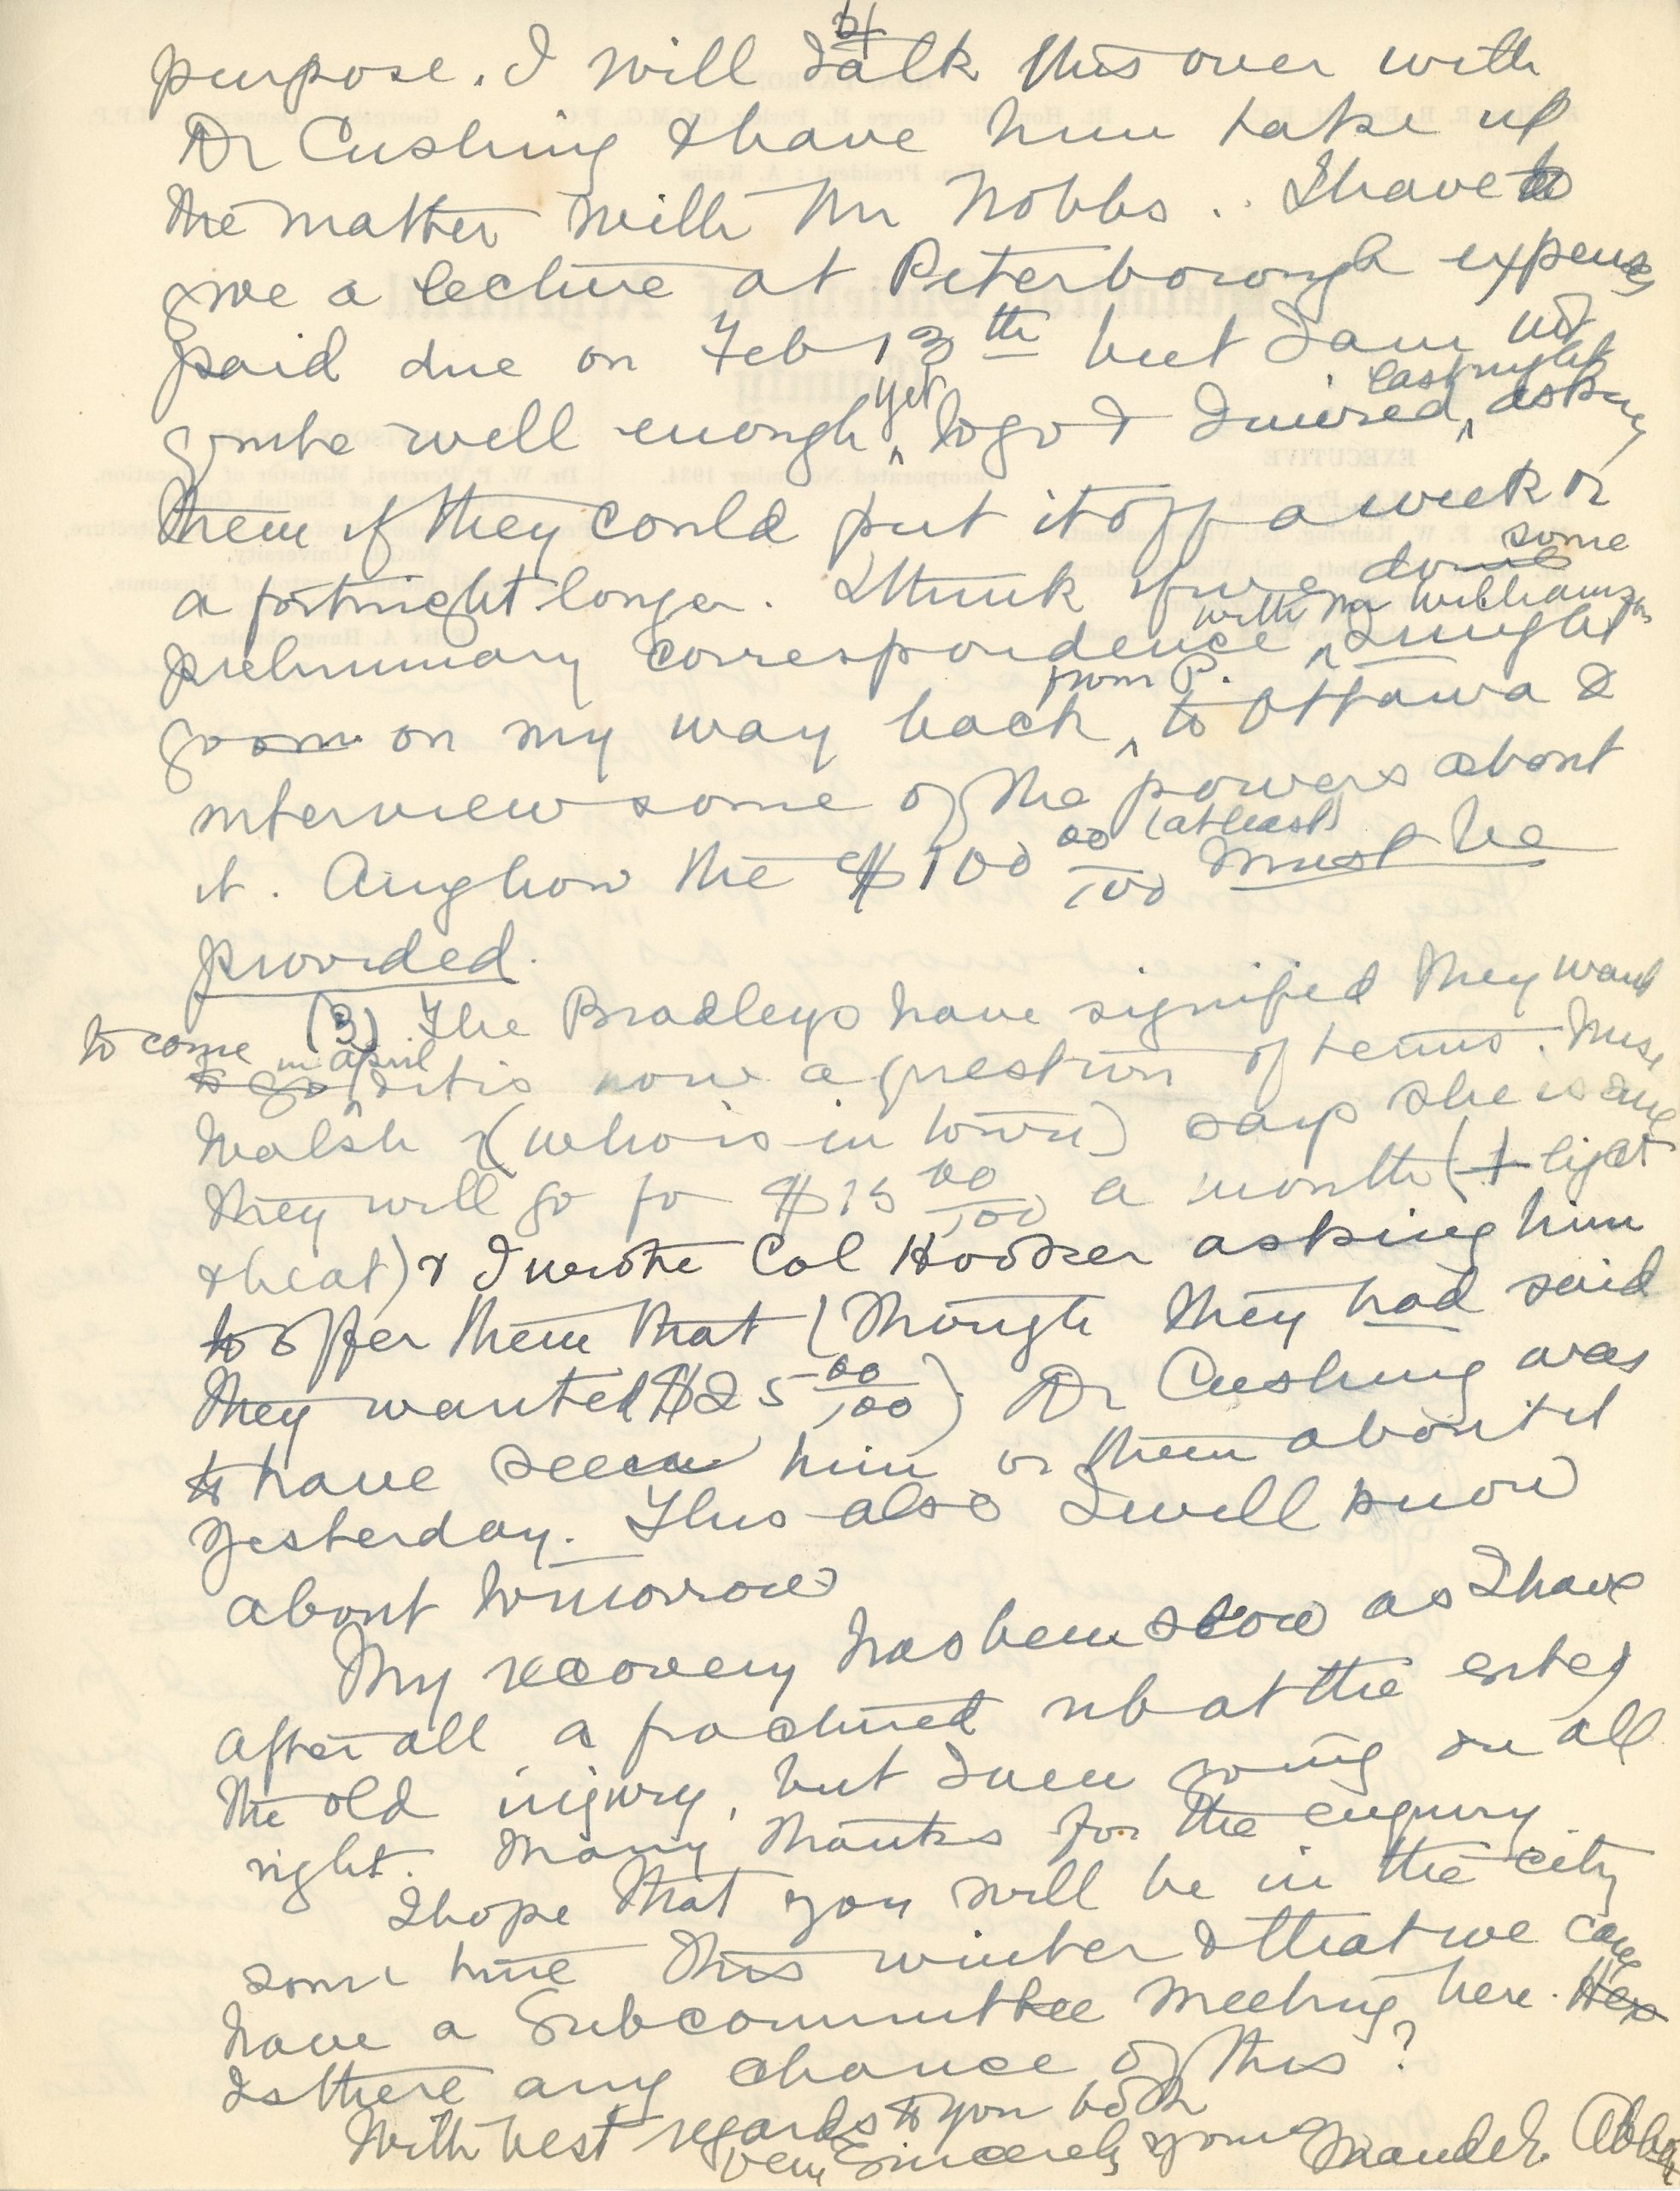 purpose. I will talk this over with
Dr Cushing & have him take up
the matter with Mr Nobbs. I have to
give a lecture at Peterborough expenses
paid due on Feb 13th but I am not
quite well enough yet to go & I wired last night asking
them if they could put it off a week or
a fortnight longer. I think if we do some
preliminary correspondence with Mr Williams I might
go on my way back from P. to Ottawa &
interview some of the powers about
it. Anyhow the $100 00/100 (at least) must be
provided.
(3) The Bradleys have signified they want
to come in April & it is now a question of terms. Miss
Walsh (who is in town) says she is sure
they will go for $15 00/100 a month (+ light
& heat) & I wrote Col Hooker asking him
to offer them that (though they had said
they wanted $25 00/100) Dr Cushing was
to have seen him or them about it
yesterday. This also I will know
about tomorrow
My recovery has been slow as I have
after all a fractured rib at the
the old injury, but I am going on all
right. Many thanks for the enquiry.
I hope that you will be in the city
some time this winter & that we can
have a Subcommittee meeting here.
Is there any chance of this?
With best regards to you both
very Sincerely yours Maude E. Abbott